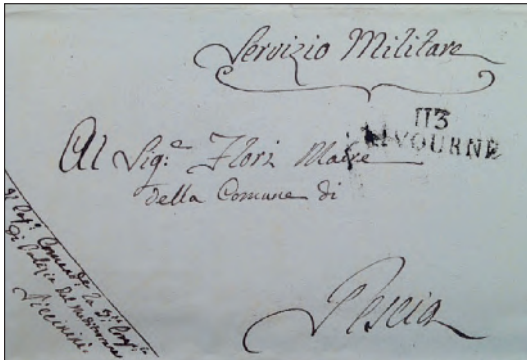 Servizio Militare
113
LIVOURNE
Al Sig.e Flori Maire
della Comune di
Pescia
Il Cap.o Comand.e la
Di Polizia del Mediterraneo
Piccinini.